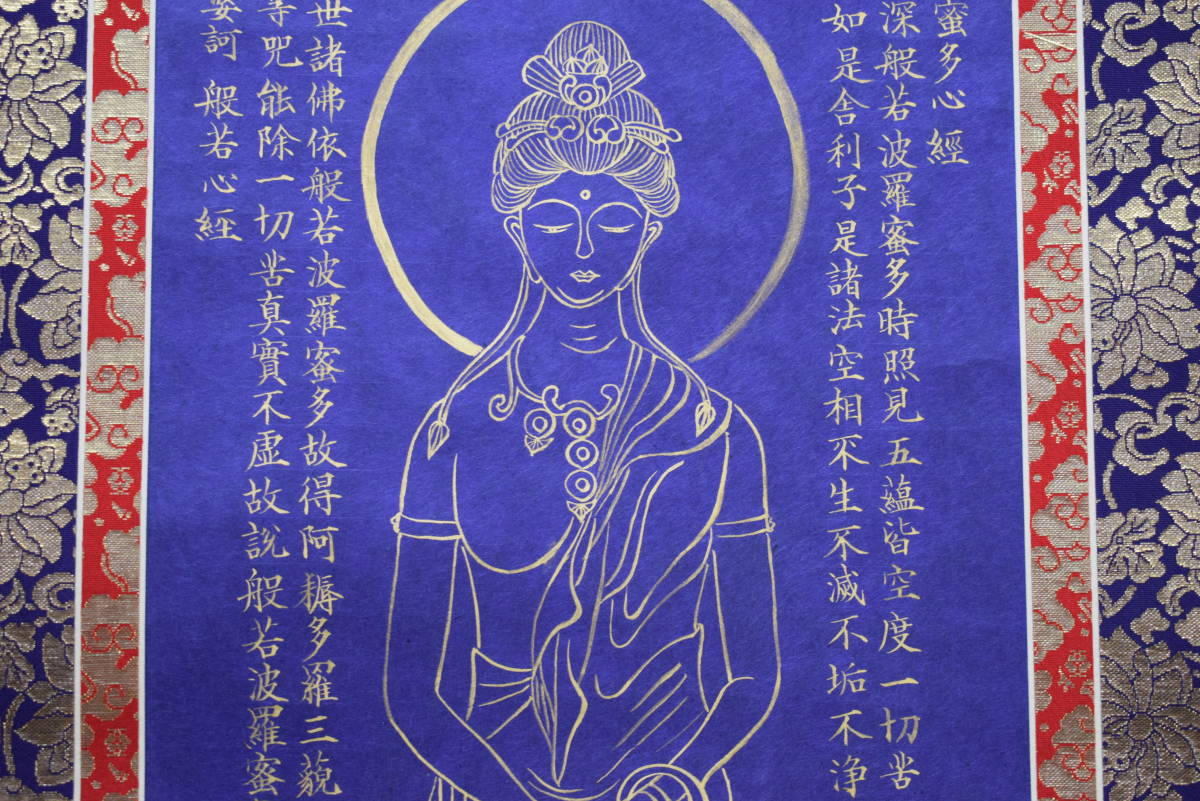 蜜多心經
深般若波羅蜜多時照見五蘊皆空度一切苦
如是舍利子是諸法空相不生不滅不垢不浄
世諸佛依般若波羅蜜多故得阿耨多羅三藐
等咒能除一切苦真實不虛故說般若波羅蜜
婆訶 般若心經